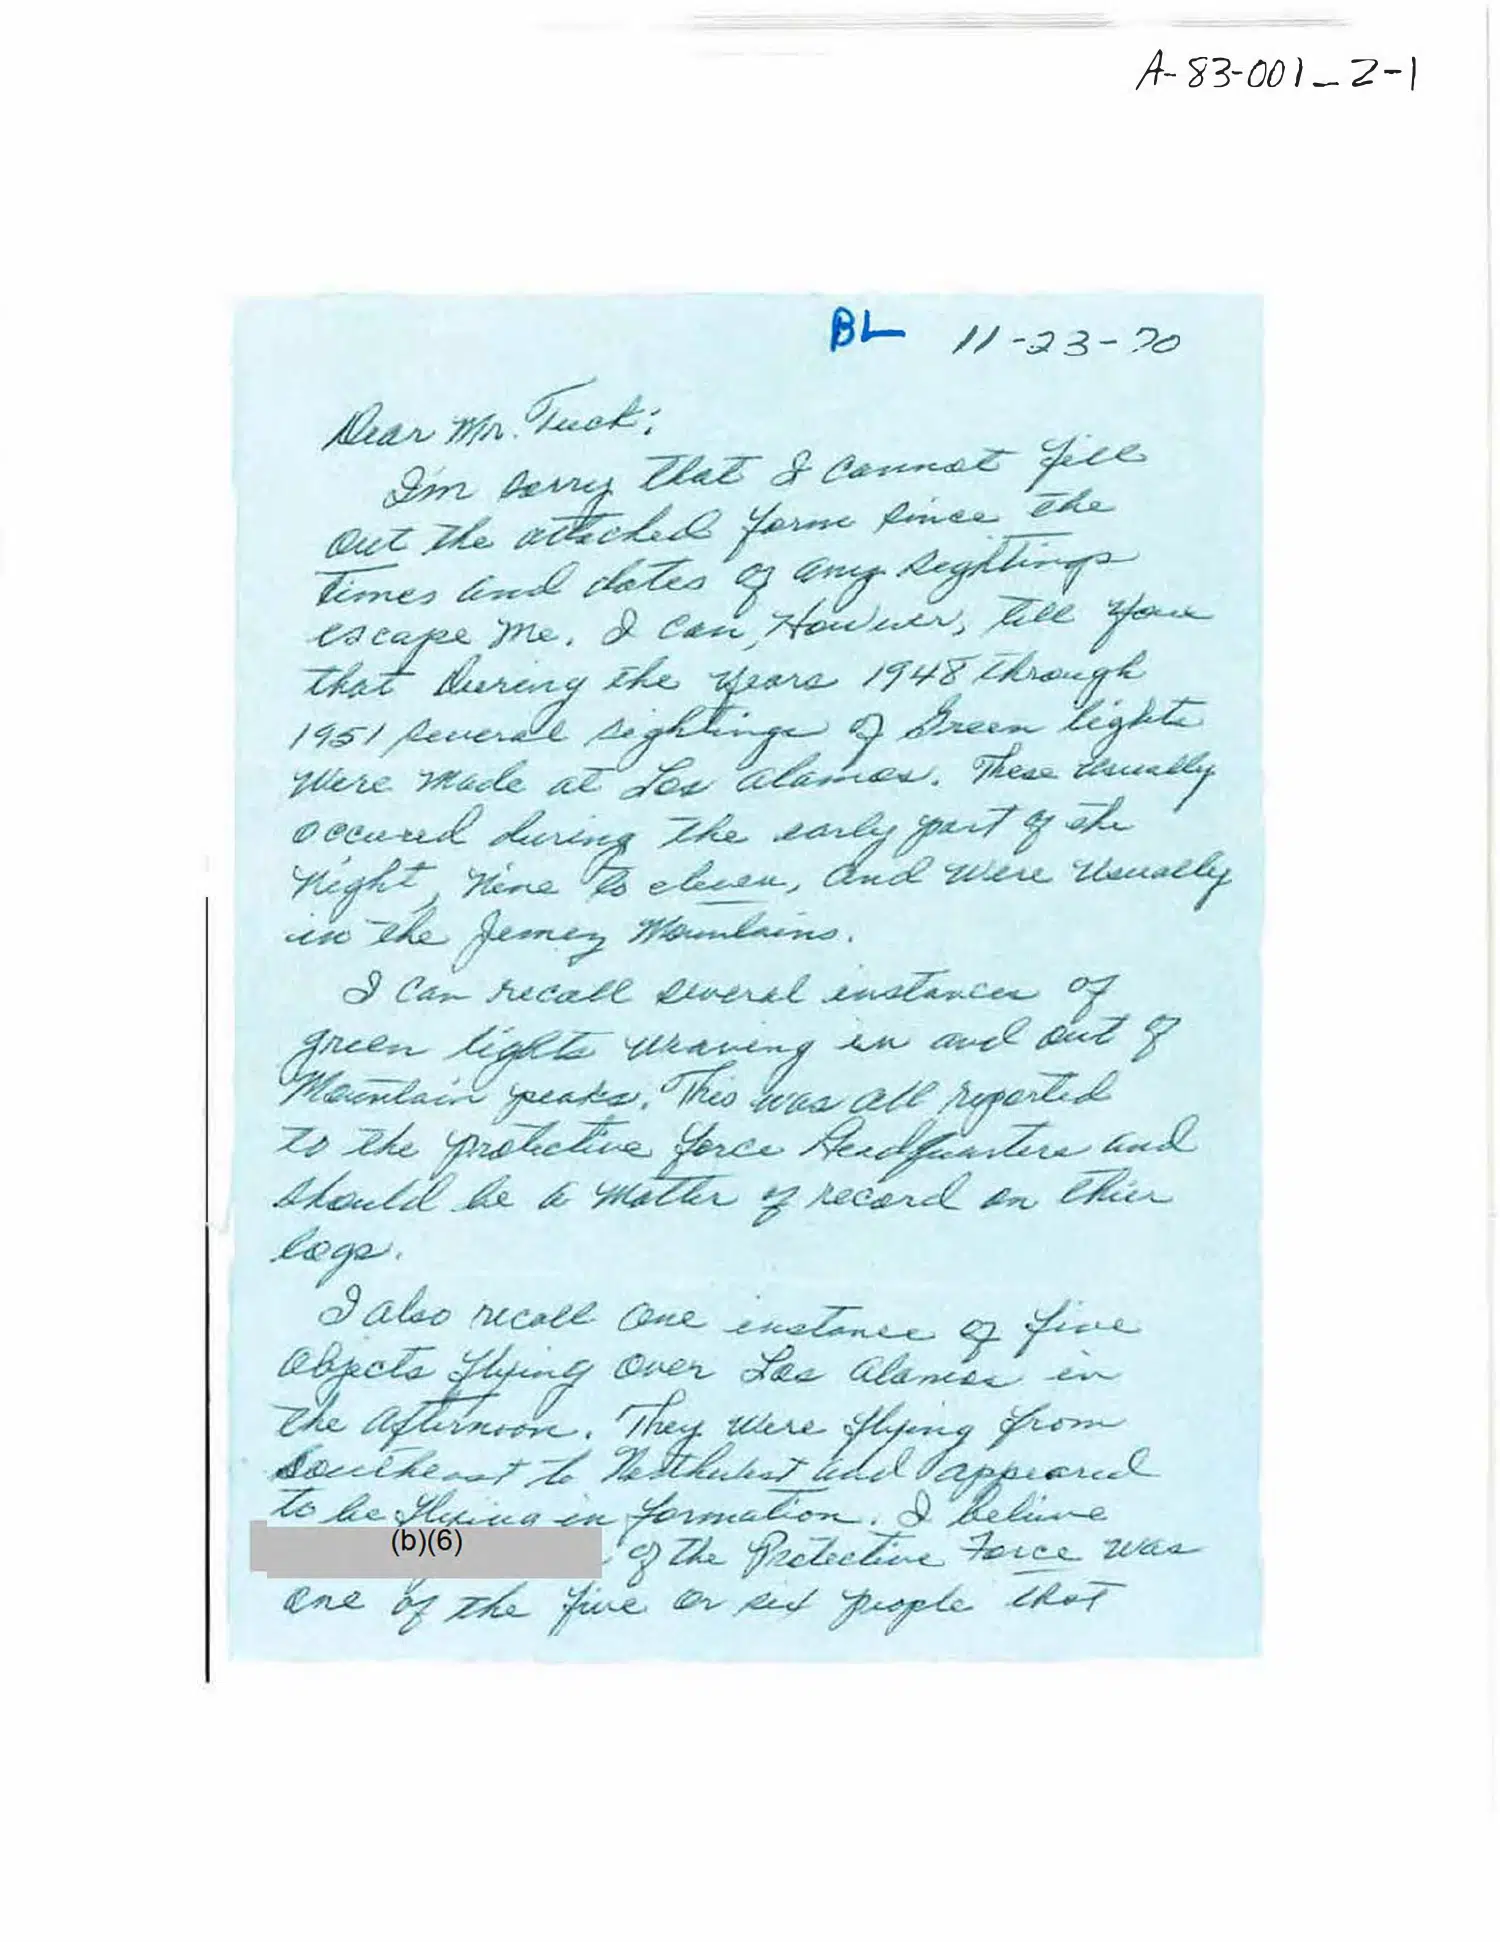 A-83-001_2-1
BL 11-23-70
Dear Mr. Tuck;
I'm sorry that I cannot fill
out the attached form since the
times and dates of any sightings
escape me. I can, However, tell you
that During the years 1948 through
1951 several sightings of Green lights
were made at Los Alamos. These usually
occured during the early part of the
night, nine to eleven, and were usually
in the Jemez Mountains.
I can recall several instances of
green lights weaving in and out of
Mountain peaks. This was all reported
to the protective force Headquarters and
should be a matter of record on thier
logs.
I also recall one instance of five
objects flying over Los Alamos in
the afternoon. They were flying from
Southeast to Northwest and appeared
to be flying in formation. I believe
(b)(6) of the Protective Force was
one of the five or six people that